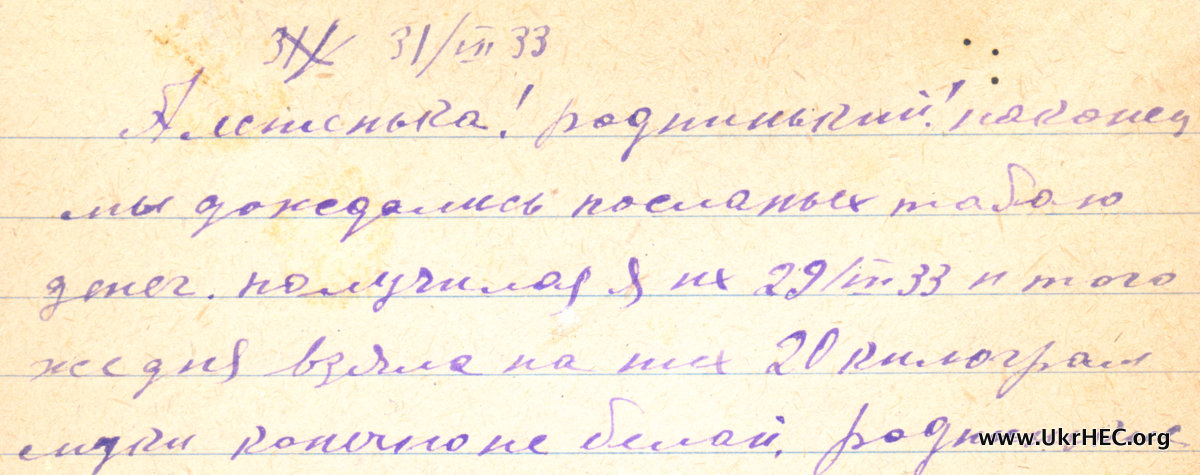 31/X 31/III 33
Алешенька! роднинький! наконец
мы дождались посланых табою
денег. получилая я их 29/III 33 и того
же дня взяла на них 20 килограм
муки конечно не белай,
www.UkrHEC.org